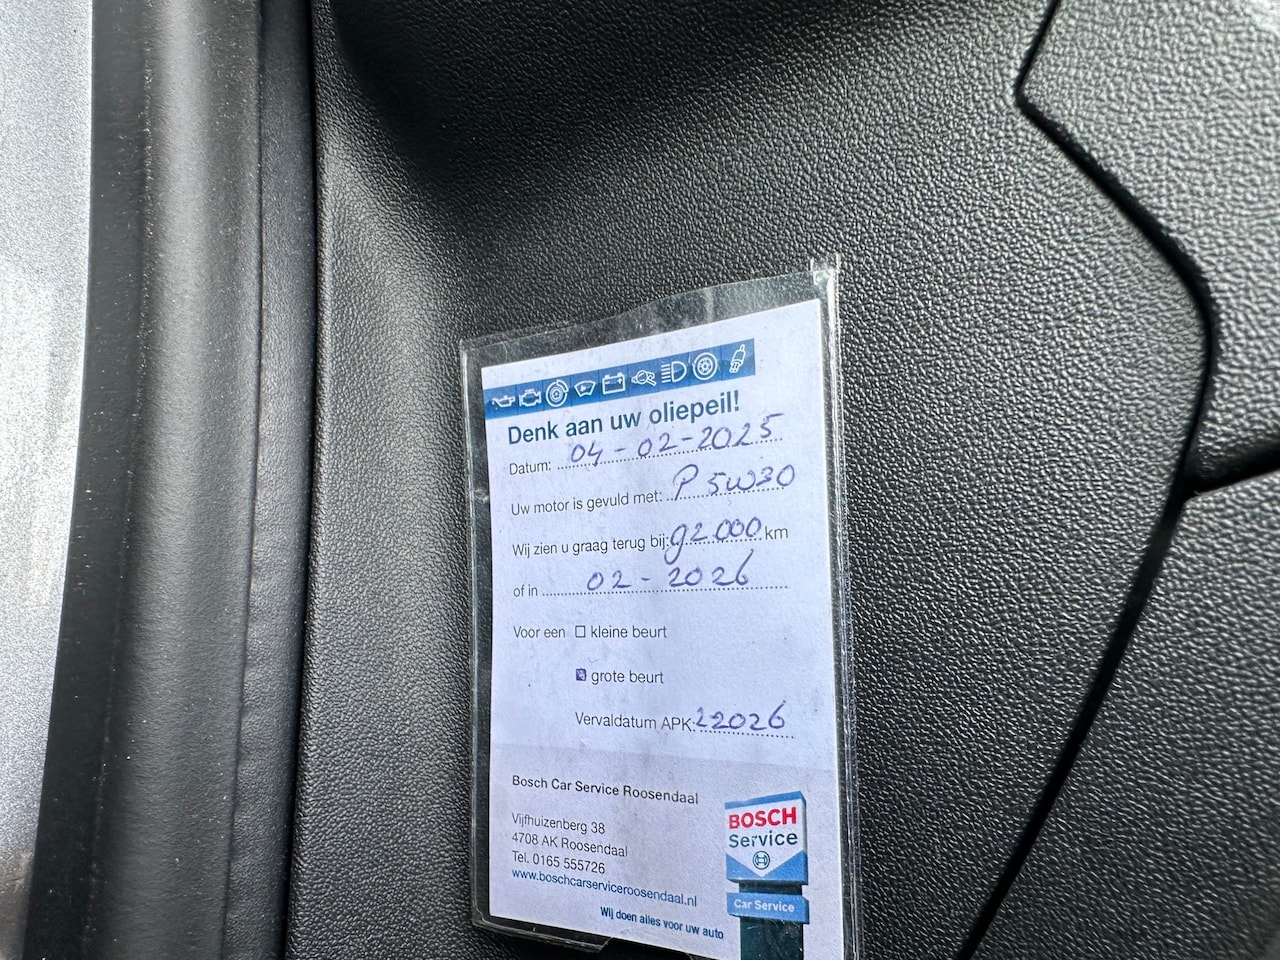 Denk aan uw oliepeil!
Datum: 04-02-2025
Uw motor is gevuld met: P 5W30
Wij zien u graag terug bij: 92000 km
of in 02-2026
Voor een kleine beurt
grote beurt
Vervaldatum APK: 22026
Bosch Car Service Roosendaal
Vijfhuizenberg 38
4708 AK Roosendaal
Tel. 0165 555726
www.boschcarserviceroosendaal.nl
Wij doen alles voor uw auto
BOSCH
Service
Car Service